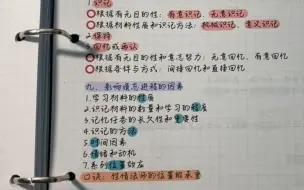 1.识记
○根据有无目的性：有意识记、无意识记
○根据材料性质和识记方法：机械识记、意义识记
2.保持
3.回忆或再认
○根据有无目的性和意志努力：无意回忆、有意回忆
○根据条件与方式：间接回忆和直接回忆
九、影响遗忘进程的因素
1.学习材料的性质
2.识记材料的数量和学习的程度
3.记忆任务的长久性和重要性
4.识记的方法
5.时间因素
6.情绪和动机
7.系列位置效应
口诀：性情法师的位置能承重